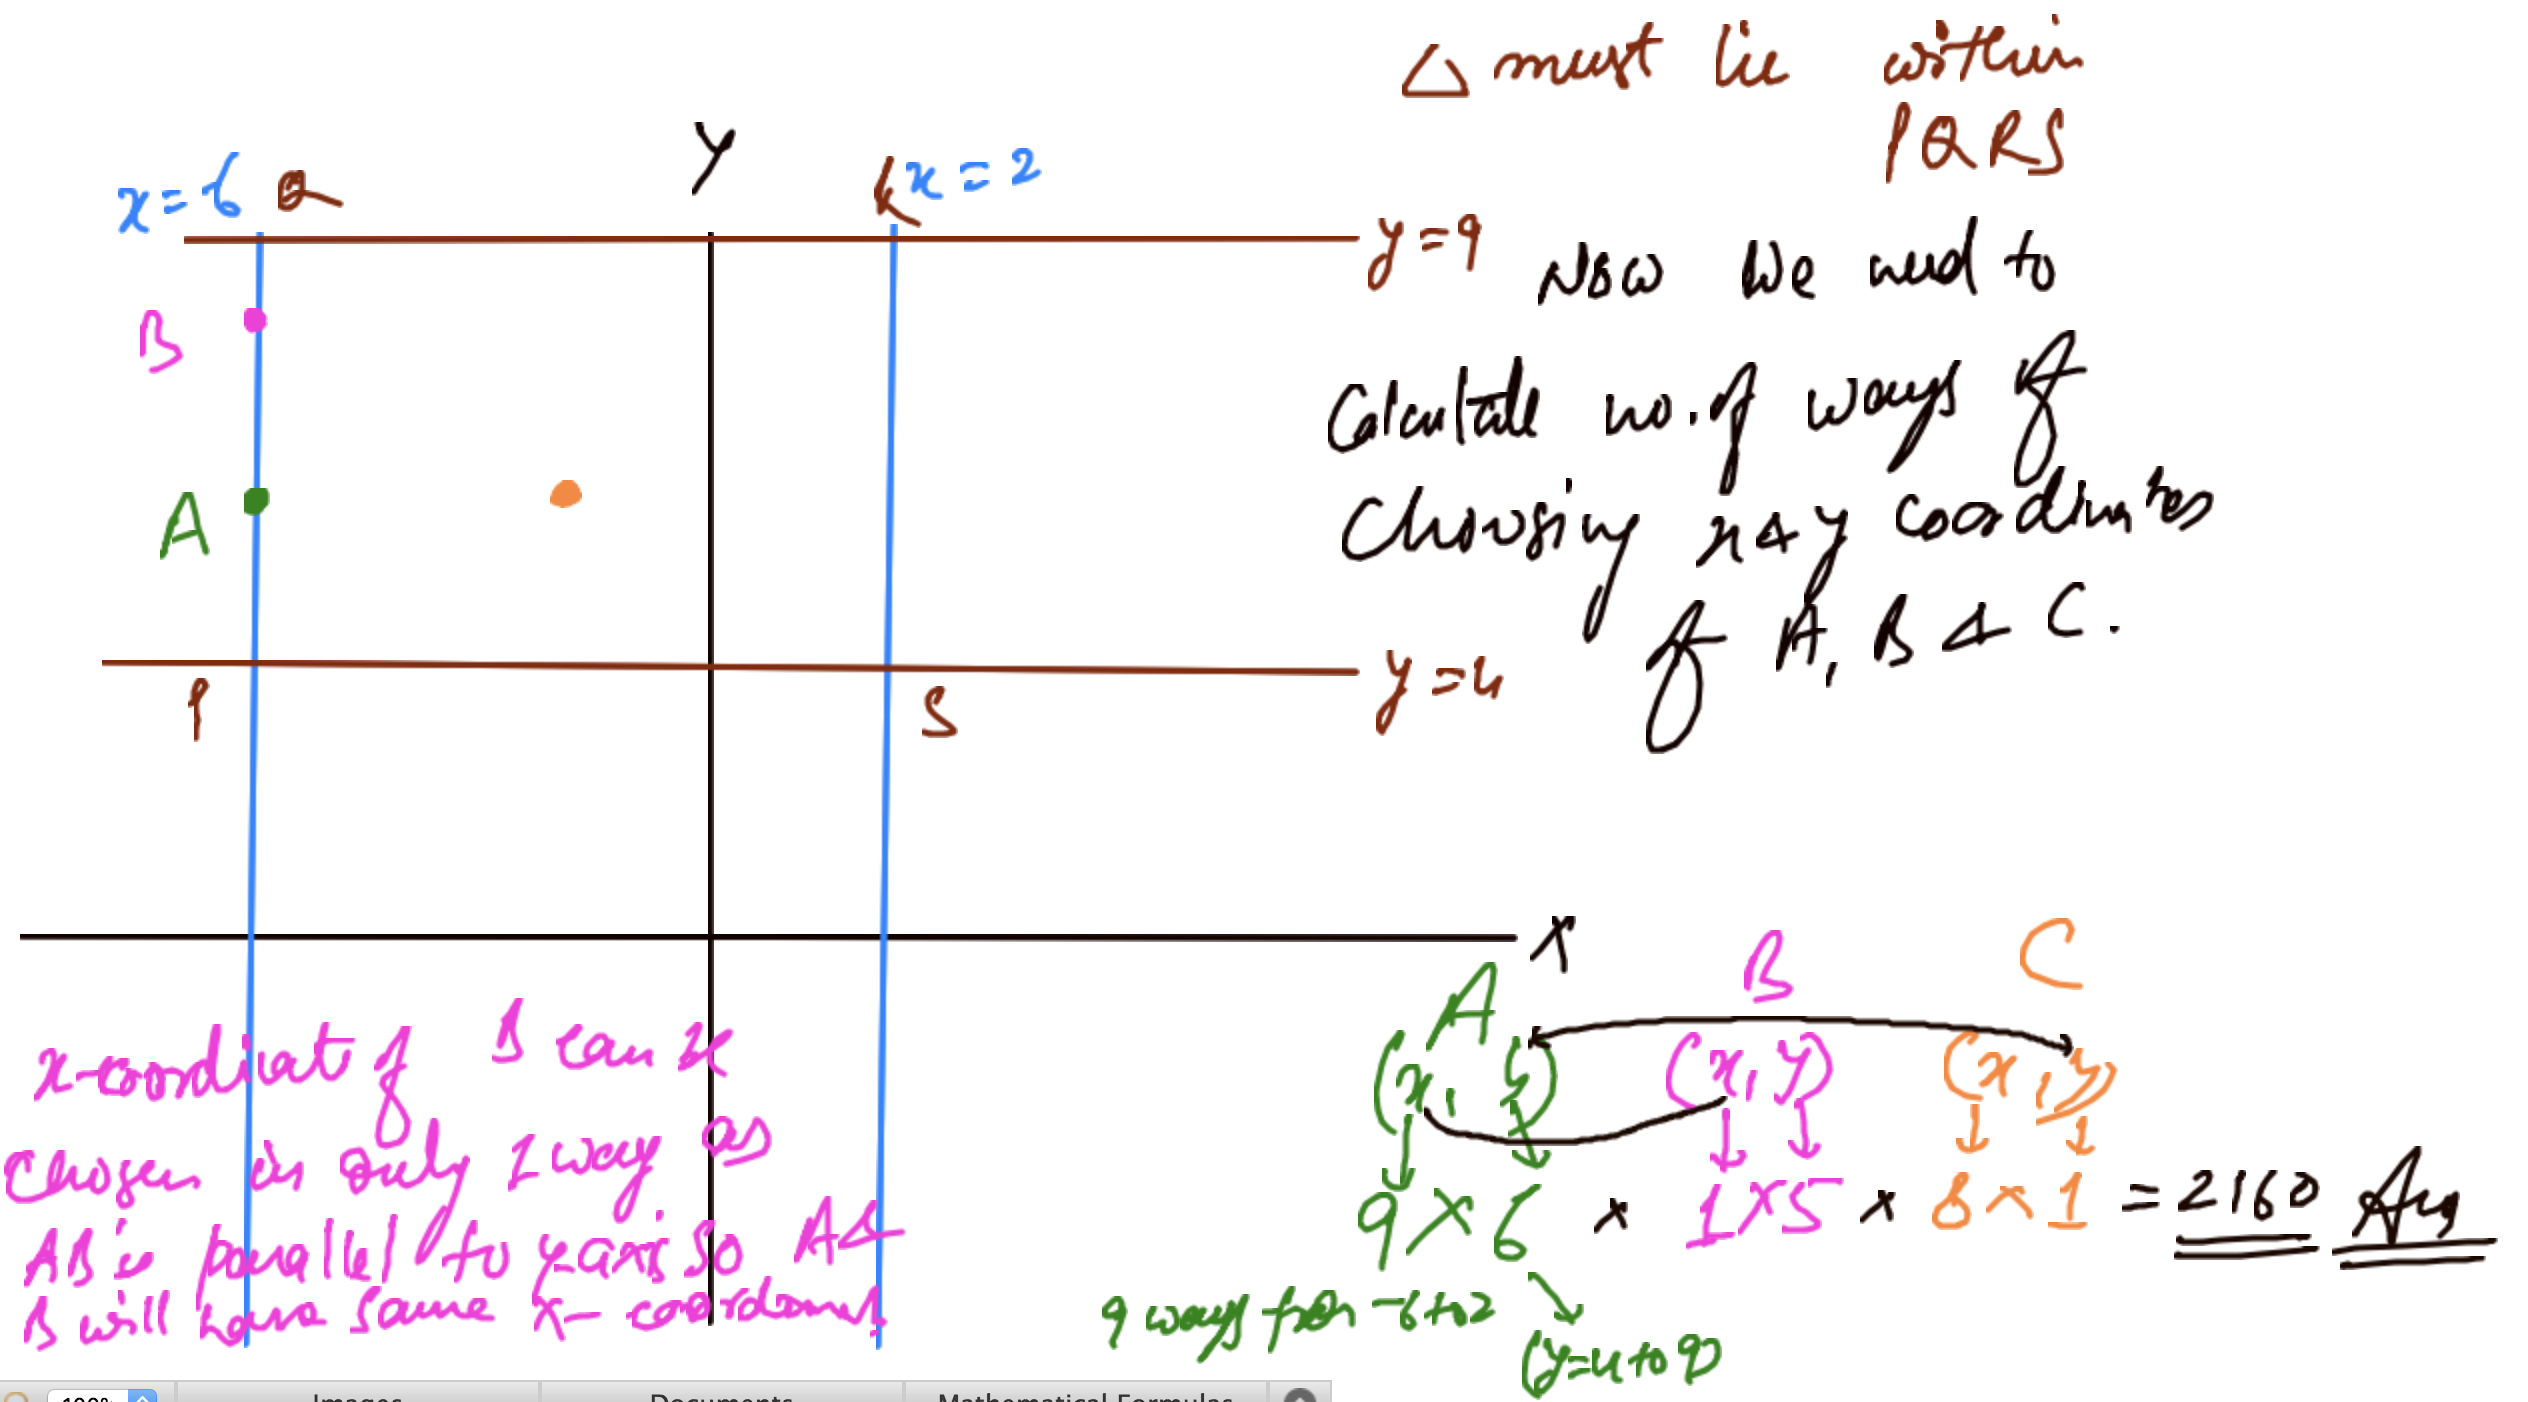 △ must lie within
PQRS
Y
x=6 Q
R x = 2
y = 9
Now we need to
B
Calculate no. of ways of
Choosing x & y coordinates
A
of A, B & C.
P
S
y = 4
X
A B C
(x, y) (x, y) (x, y)
9 × 6 × 1 × 5 × 8 × 1 = 2160 Ans
9 ways from -6 to 2
(y = 4 to 9)
x-cordinat of B can be
Chosen in only 1 way as
AB is parallel to y-axis so A &
B will have same x-
100%
Images Documents Mathematical Formulas